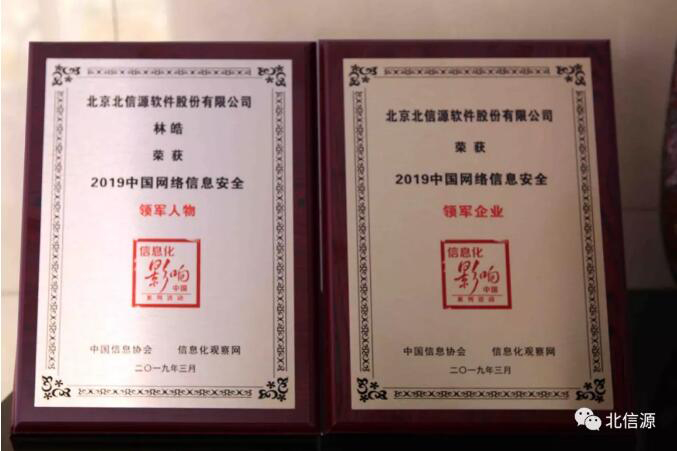 北京北信源软件股份有限公司
林皓
荣获
2019中国网络信息安全
领军人物
信息化
影响
中国
系列活动
中国信息协会 信息化观察网
二〇一九年三月
北京北信源软件股份有限公司
荣获
2019中国网络信息安全
领军企业
信息化
影响
中国
系列活动
中国信息协会 信息化观察网
二〇一九年三月
北信源